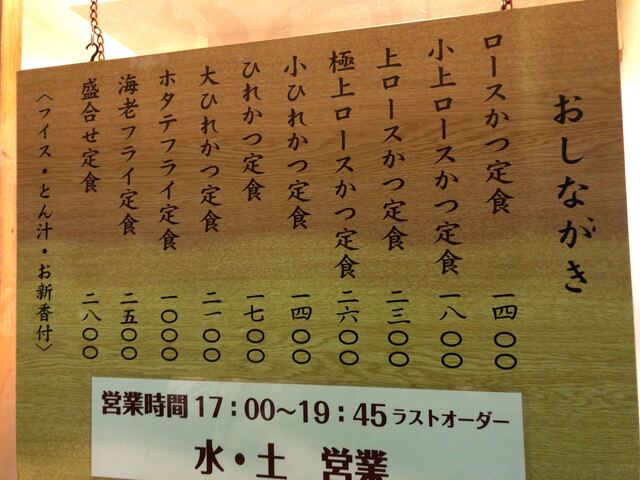 おしながき
ロースかつ定食 一四〇〇
小上ロースかつ定食 一八〇〇
上ロースかつ定食 二三〇〇
極上ロースかつ定食 二六〇〇
小ひれかつ定食 一四〇〇
ひれかつ定食 一七〇〇
大ひれかつ定食 二一〇〇
ホタテフライ定食 一〇〇〇
海老フライ定食 二五〇〇
盛合せ定食 二八〇〇
〈フイス・とん汁・お新香付〉
営業時間 17：00〜19：45 ラストオーダー
水・土 営業